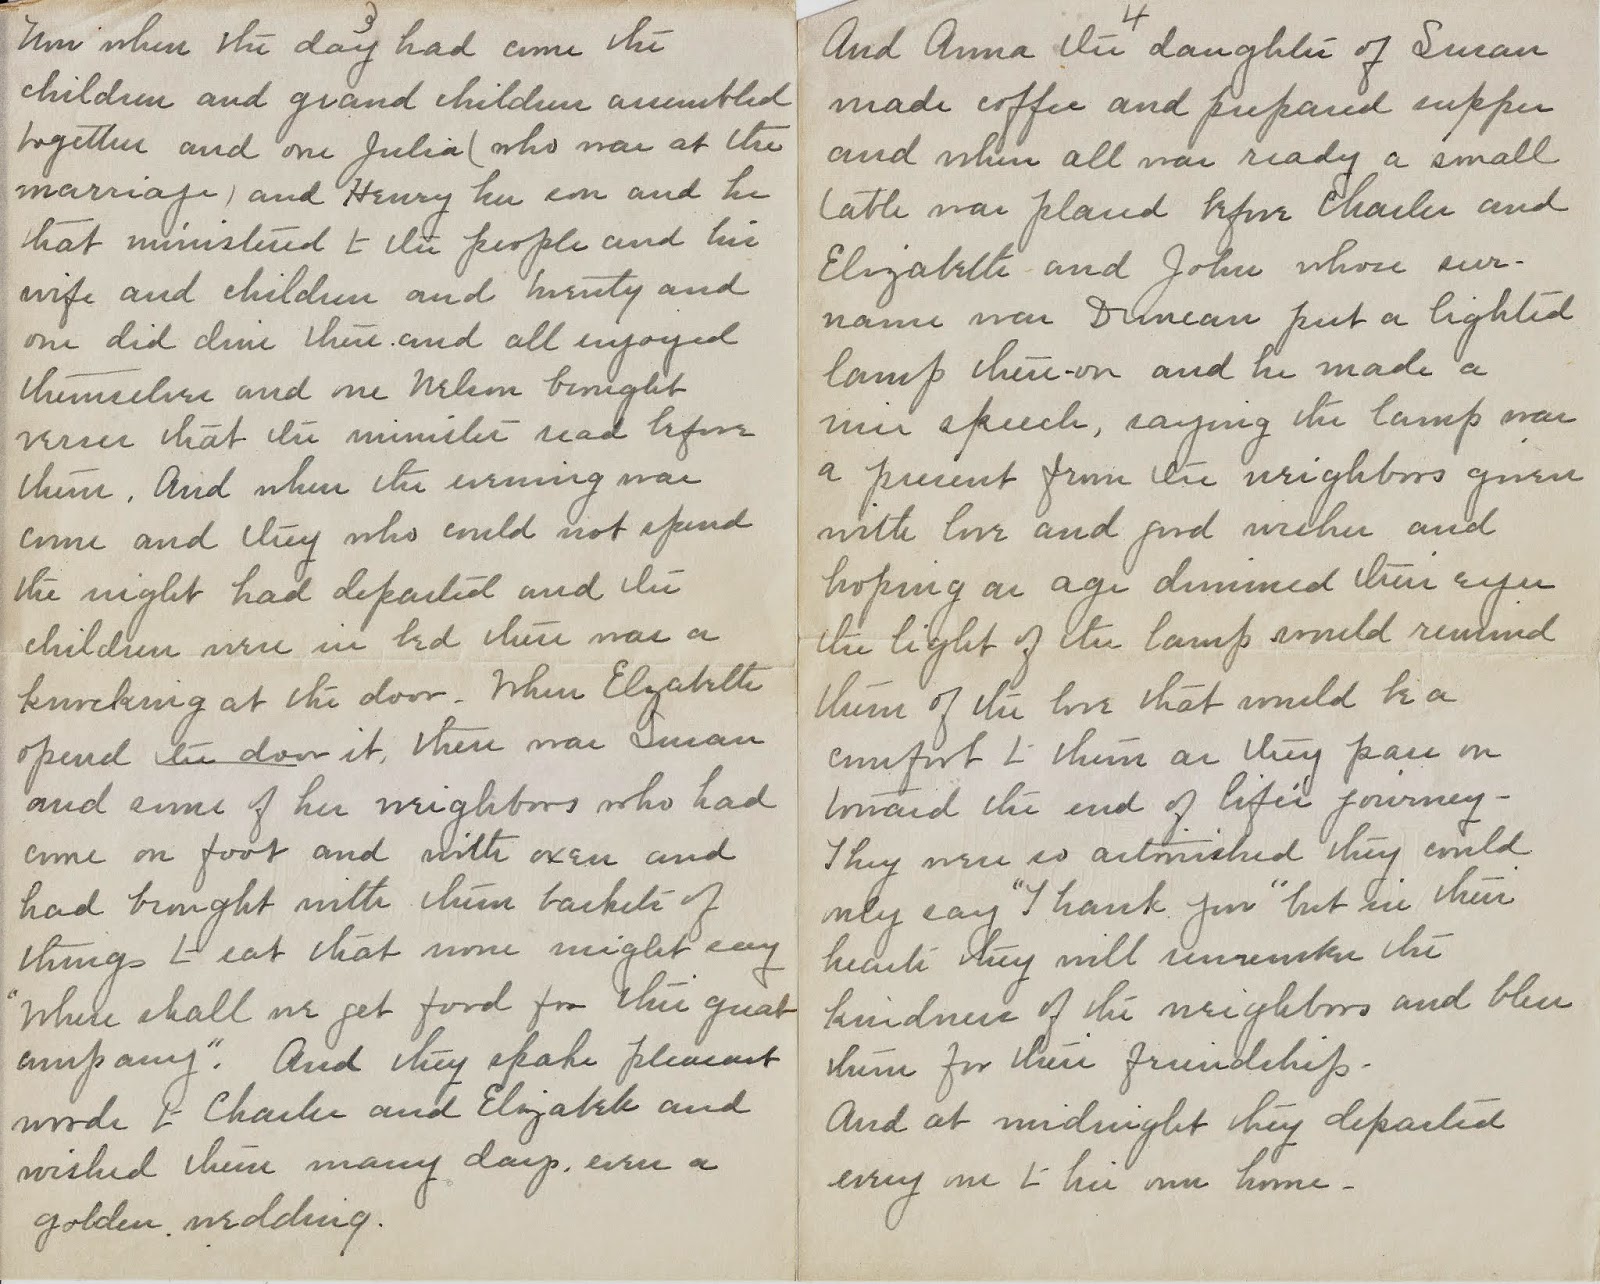 3
Now when the day had come the
children and grand children assembled
together and one Julia (who was at the
marriage) and Henry her son and he
that ministered to the people and his
wife and children and twenty and
one did dine there. and all enjoyed
themselves and one Nelson brought
verses that the minister read before
them. And when the evening was
come and they who could not spend
the night had departed and the
children were in bed there was a
knocking at the door. When Elizabeth
opend the door it, there was Susan
and some of her neighbors who had
come on foot and with oxen and
had brought with them baskets of
things to eat that none might say
"Where shall we get food for this great
company". And they spake pleasant
words to Charles and Elizabeth and
wished them many days. even a
golden wedding.
4
And Anna the daughter of Susan
made coffee and prepared supper
and when all was ready a small
table was placed before Charles and
Elizabeth and John whose sur-
name was Duncan put a lighted
lamp there-on and he made a
nice speech, saying the lamp was
a present from the neighbors given
with love and good wishes and
hoping as age dimmed their eyes
the light of the lamp would remind
them of the love that would be a
comfort to them as they pass on
toward the end of life's journey-
They were so astonished they could
only say "Thank you" but in their
hearts they will remember the
kindness of the neighbors and bless
them for their friendship-
And at midnight they departed
every one to his own home-